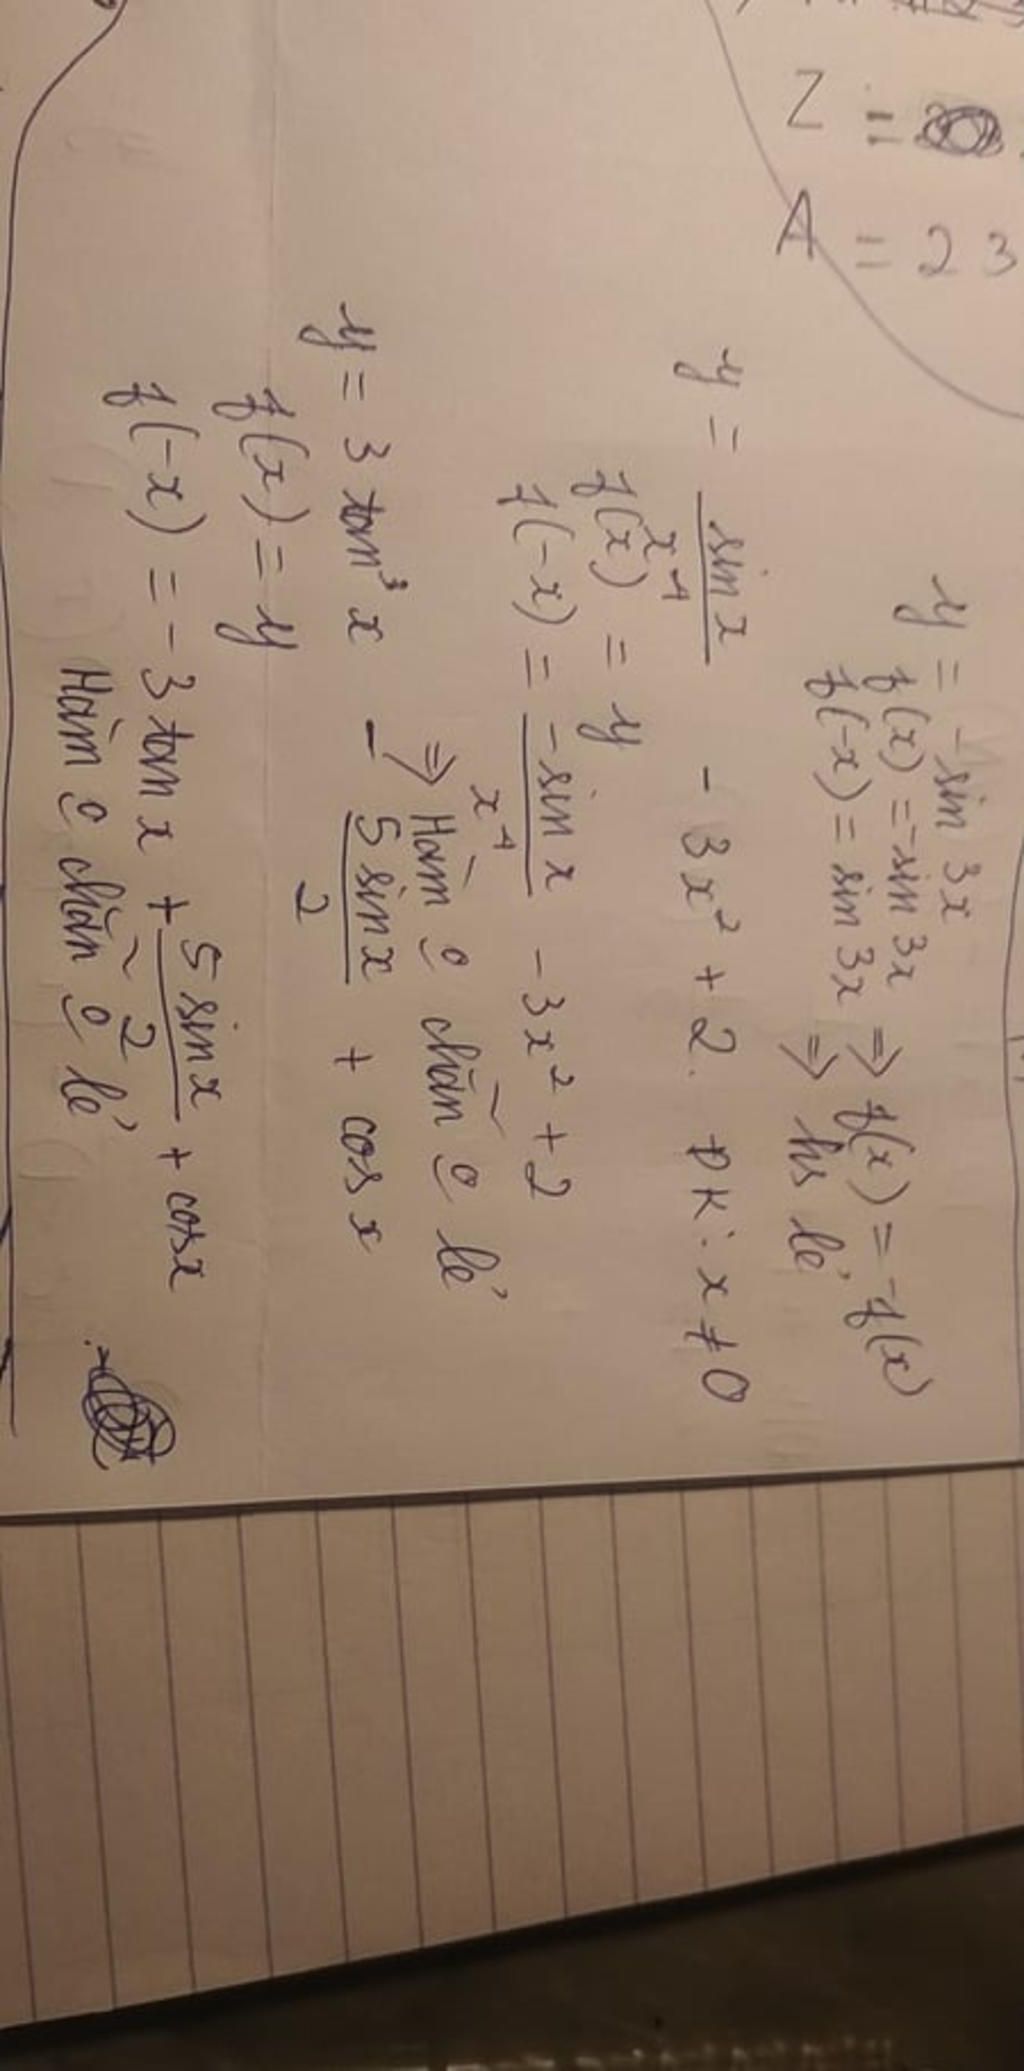 Z =
A = 23
y = -sin 3x
f(x) = -sin 3x ⇒ f(x) = -f(x)
f(-x) = sin 3x ⇒ hs lẻ
y = sin x / x⁴ - 3x² + 2. ĐK: x ≠ 0
f(x) = y
f(-x) = -sin x / x⁴ - 3x² + 2
⇒ Hàm o chẵn o lẻ
y = 3 tan³ x - 5 sin x / 2 + cos x
f(x) = y
f(-x) = -3 tan x + 5 sin x / 2 + cos x
Hàm o chẵn o lẻ